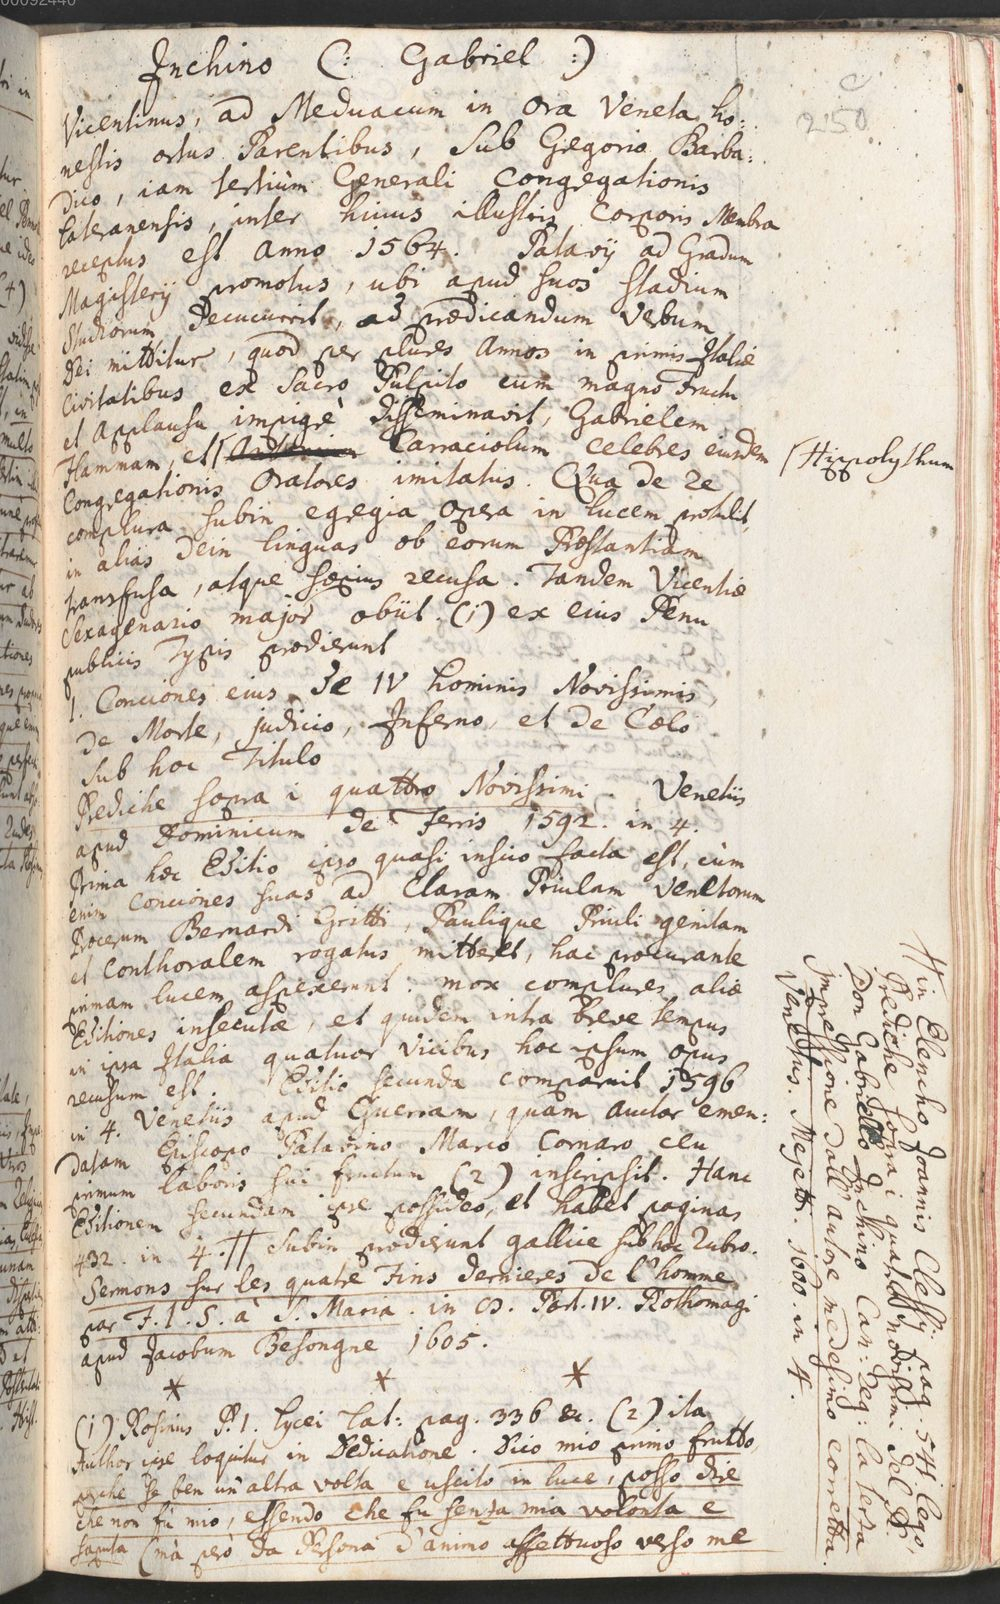 00092440
Inchino (: Gabriel :)
2150.
Vicentinus, ad Meduacum in Ora Veneta ho:
nestis ortus Parentibus, sub Gregorio Barba:
dico, iam tertiùm Generali Congregationis
Lateranensis, inter huius illustris Corporis Membra
receptus est anno 1564. Patavij ad Gradum
Magisterij promotus, ubi apud suos stadium
Studiorum decucurrit, ad prædicandum Verbum
Dei mittitur, quod per plures Annos in primis Italiæ
Civitatibus ex Sacro Pulpito cum magno fructu
et Applausu impigrè disseminavit, Gabrielem
Flammam, et Carraciolum celebres eiusdem
Hippolythum
Congregationis Oratores imitatus. Qua de re
complura subin egregia opera in lucem protulit,
in alias dein linguas ob eorum Præstantiam
transfusa, atque sæpius recusa. Tandem Vicentiæ
Sexagenario major obiit. (1) ex eius Penu
publicis Typis prodierunt
1. Conciones eius de IV hominis Novissimis,
de Morte, judicio, Inferno, et de Cœlo
sub hoc Titulo
Prediche sopra i quattro Novissimi. Venetiis
apud Dominicum de Ferris 1592. in 4.
Prima hæc Editio ipso quasi inscio facta est, cùm
enim Conciones suas ad Claram Priulam Venetorum
Procerum Bernardi Gritti, Paulique Priuli genitam
et Conthoralem rogatus mitteret, hac procurante
primam lucem aspexerunt: mox complures aliæ
Editiones insecutæ, et quidem intra breve tempus
in ipsa Italia quatuor vicibus hoc ipsum opus
recusum est. Editio secunda comparuit 1596
in 4. Venetiis apud Guerram, quam Auctor emen:
datam Episcopo Patavino Marco Cornaro ceu
primum laboris sui fructum (2) inscripsit. Hanc
Editionem secundam ipse possideo, et habet paginas
432. in 4. # subin prodierunt gallice sub hoc Rubro.
Sermons sur les quatre Fins dernieres de l'homme
par F. I. S. à S. Maria. in 8. Part. IV. Rothomagi
apud Jacobum Besongne 1605.
* * *
(1) Rosinus P. 1. Lycei Lat: pag. 336 &c. (2) ita
Author ipse loquitur in Dedicatione. Dico mio primo frutto,
perche se ben un'altra volta e uscito in luce, posso dire
che non fù mio, essendo che fu senza mia volonta e
saputa (mà però da Persona d'animo affettuoso verso me
# in Elencho Joannis Clessij pag. 541 lego,
Prediche sopra i quattro novissimi del P.
Don Gabriello Inchino Can: Reg: la terza
Impressione dall'autore medesimo corretta.
Venetiis. Mejetti. 1600. in 4.